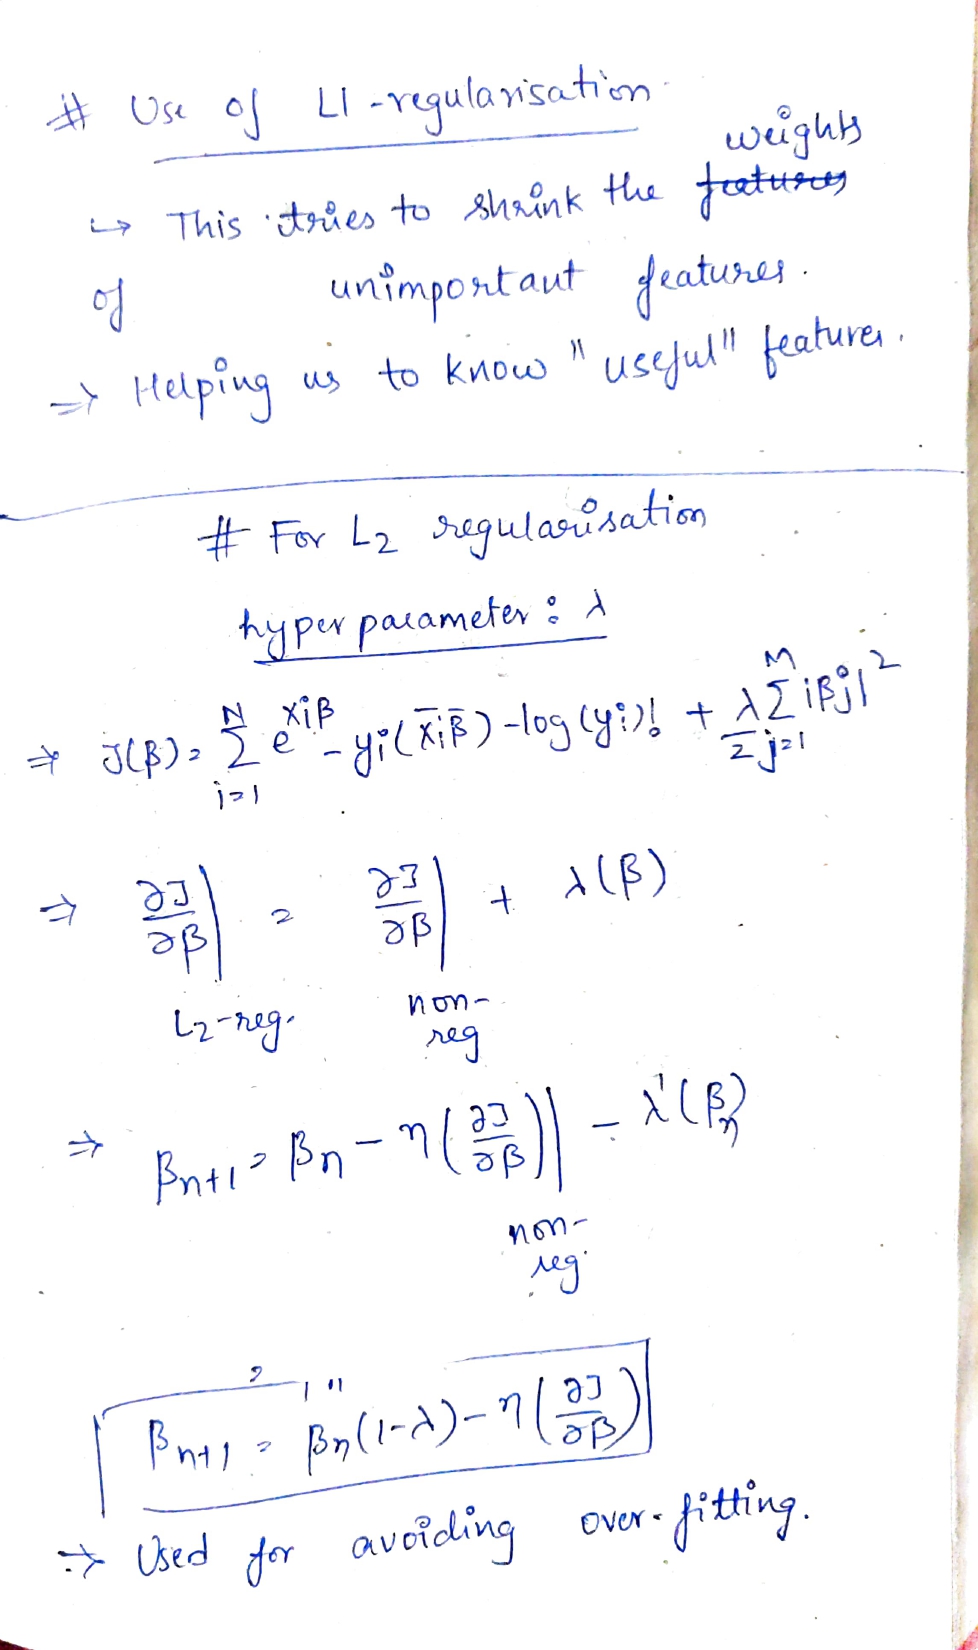 # Use of L1-regularisation
weights
↳ This tries to shrink the features
of unimportant features.
⇒ Helping us to know "useful" features.
# For L2 regularisation
hyper parameter : λ
⇒ J(β) = N Σ i=1 e^{Xiβ} - yi(x̄iβ̄) - log(yi)! + λ/2 M Σ j=1 |βj|²
⇒ ∂J/∂β | = ∂J/∂β | + λ(β)
L2-reg. non-
reg
⇒ βn+1 = βn - η(∂J/∂β)| - λ'(βn)
non-
reg.
βn+1 = βn(1-λ) - η(∂J/∂β)
⇒ Used for avoiding over-fitting.